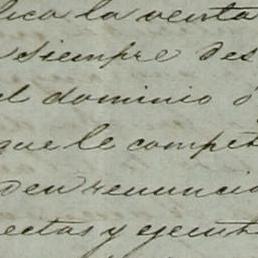 lica la venta
siempre des
el dominio ó
que le compet
den renuncia
ectas y ejecut